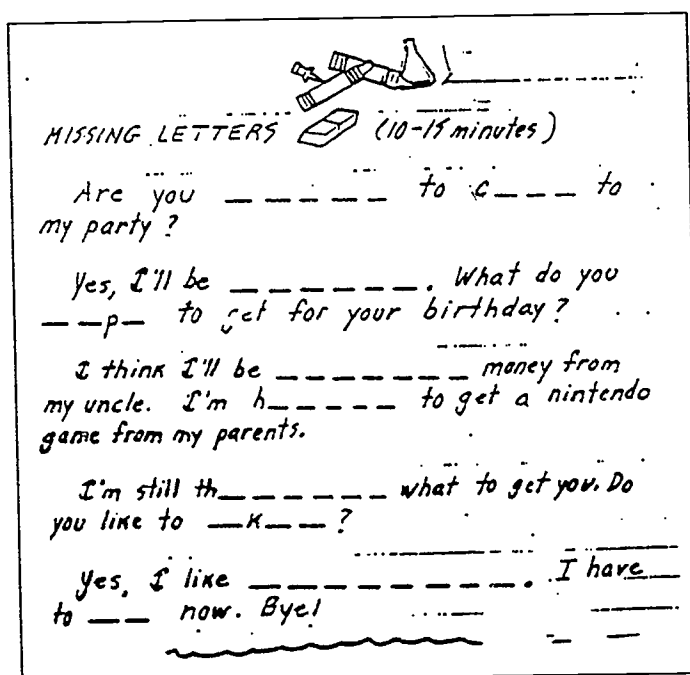 MISSING LETTERS (10-15 minutes)
Are you _ _ _ _ _ to c _ _ _ to
my party ?
Yes, I'll be _ _ _ _ _ _. What do you
_ _ p _ to get for your birthday ?
I think I'll be _ _ _ _ _ _ _ money from
my uncle. I'm h _ _ _ _ _ to get a nintendo
game from my parents.
I'm still th _ _ _ _ _ _ what to get you. Do
you like to _ K _ _ ?
Yes, I like _ _ _ _ _ _ _ _. I have
to _ _ now. Bye!